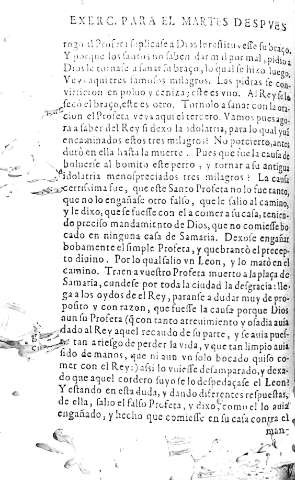 EXERC. PARA EL MARTES DESPVES
rogo al Profeta suplicase a Dios le restituyesse su braço,
Y porque los santos no saben dar mal por mal, pidio a
Dios le tornase a sanar su braço, lo qual se hizo luego,
Veys aqui tres famosos milagros. Las piedras se con-
virtieron en poluo y ceniza; este es vno. Al Rey se le
secó el braço, este es otro. Tornolo a sanar con la ora-
cion el Profeta veys aqui el tercero. Vamos pues ago-
ra a saber del Rey si dexo la idolatria, para lo qual yuā
encaminados estos tres milagros? No por cierto, antes
duró en ella hasta la muerte. Pues que fue la causa de
boluerse al bomito este perro, y tornar a su antigua
idolatria menospreciados tres milagros? La causa
certissima fue, que este Santo Profeta no lo fue tanto,
que no lo engañase otro falso, que le salio al camino,
y le dixo, que se fuesse con el a comer a su casa, tenien-
do preciso mandamiento de Dios, que no comiesse bo-
cado en ninguna casa de Samaria. Dexose engañar
bobamente el simple Profeta, y quebrantò el precep-
to diuino. Por lo qual salio vn Leon, y lo matò en el
camino. Traen a vuestro Profeta muerto a la plaça de
Samaria, cundese por toda la ciudad la desgracia: lle-
ga a los oydos de el Rey, paranse a dudar muy de pro-
posito y con razon, que fuesse la causa porque Dios
a vn su Profeta (q̃ con tanto atreuimiento y osadia auia
dado al Rey aquel recaudo de su parte, y se auia pues-
to a tan a riesgo de perder la vida, y que tan limpio auia
sido de manos, que ni aun vn solo bocado quiso co-
mer con el Rey:) assi lo vuiesse desamparado, y dexa-
do que aquel cordero suyo se lo despedaçase el Leon?
Y estando en esta duda, y dando diferentes respuestas,
de ella, salio el falso Profeta, y dixo, como el lo auia
engañado, y hecho que comiesse en su casa contra el
man-